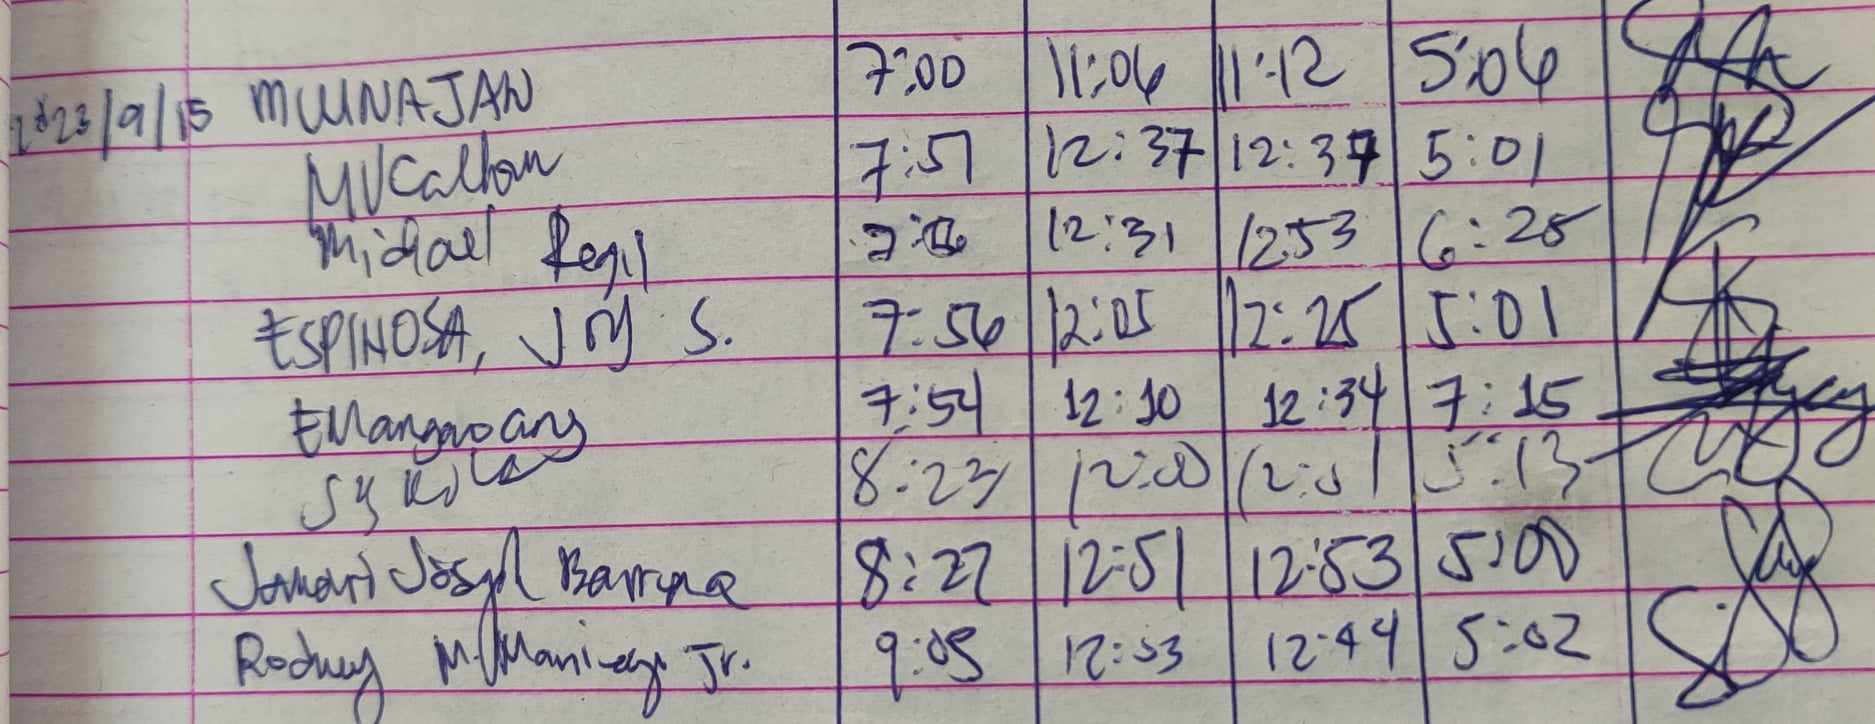 2023/9/15 MUNAJAN 7:00 11:06 11:12 5:06
MVCalhoun 7:57 12:37 12:37 5:01
Michael Regil 12:31 12:53 6:25
ESPINOSA, JOY S. 7:56 12:05 12:25 5:01
EMangaoang 7:54 12:10 12:34 7:15
8:23 12:00 12:01 5:13
Jomari Joseph Barrera 8:27 12:51 12:53 5:00
Rodney M. Maniego Jr. 9:05 12:03 12:44 5:02